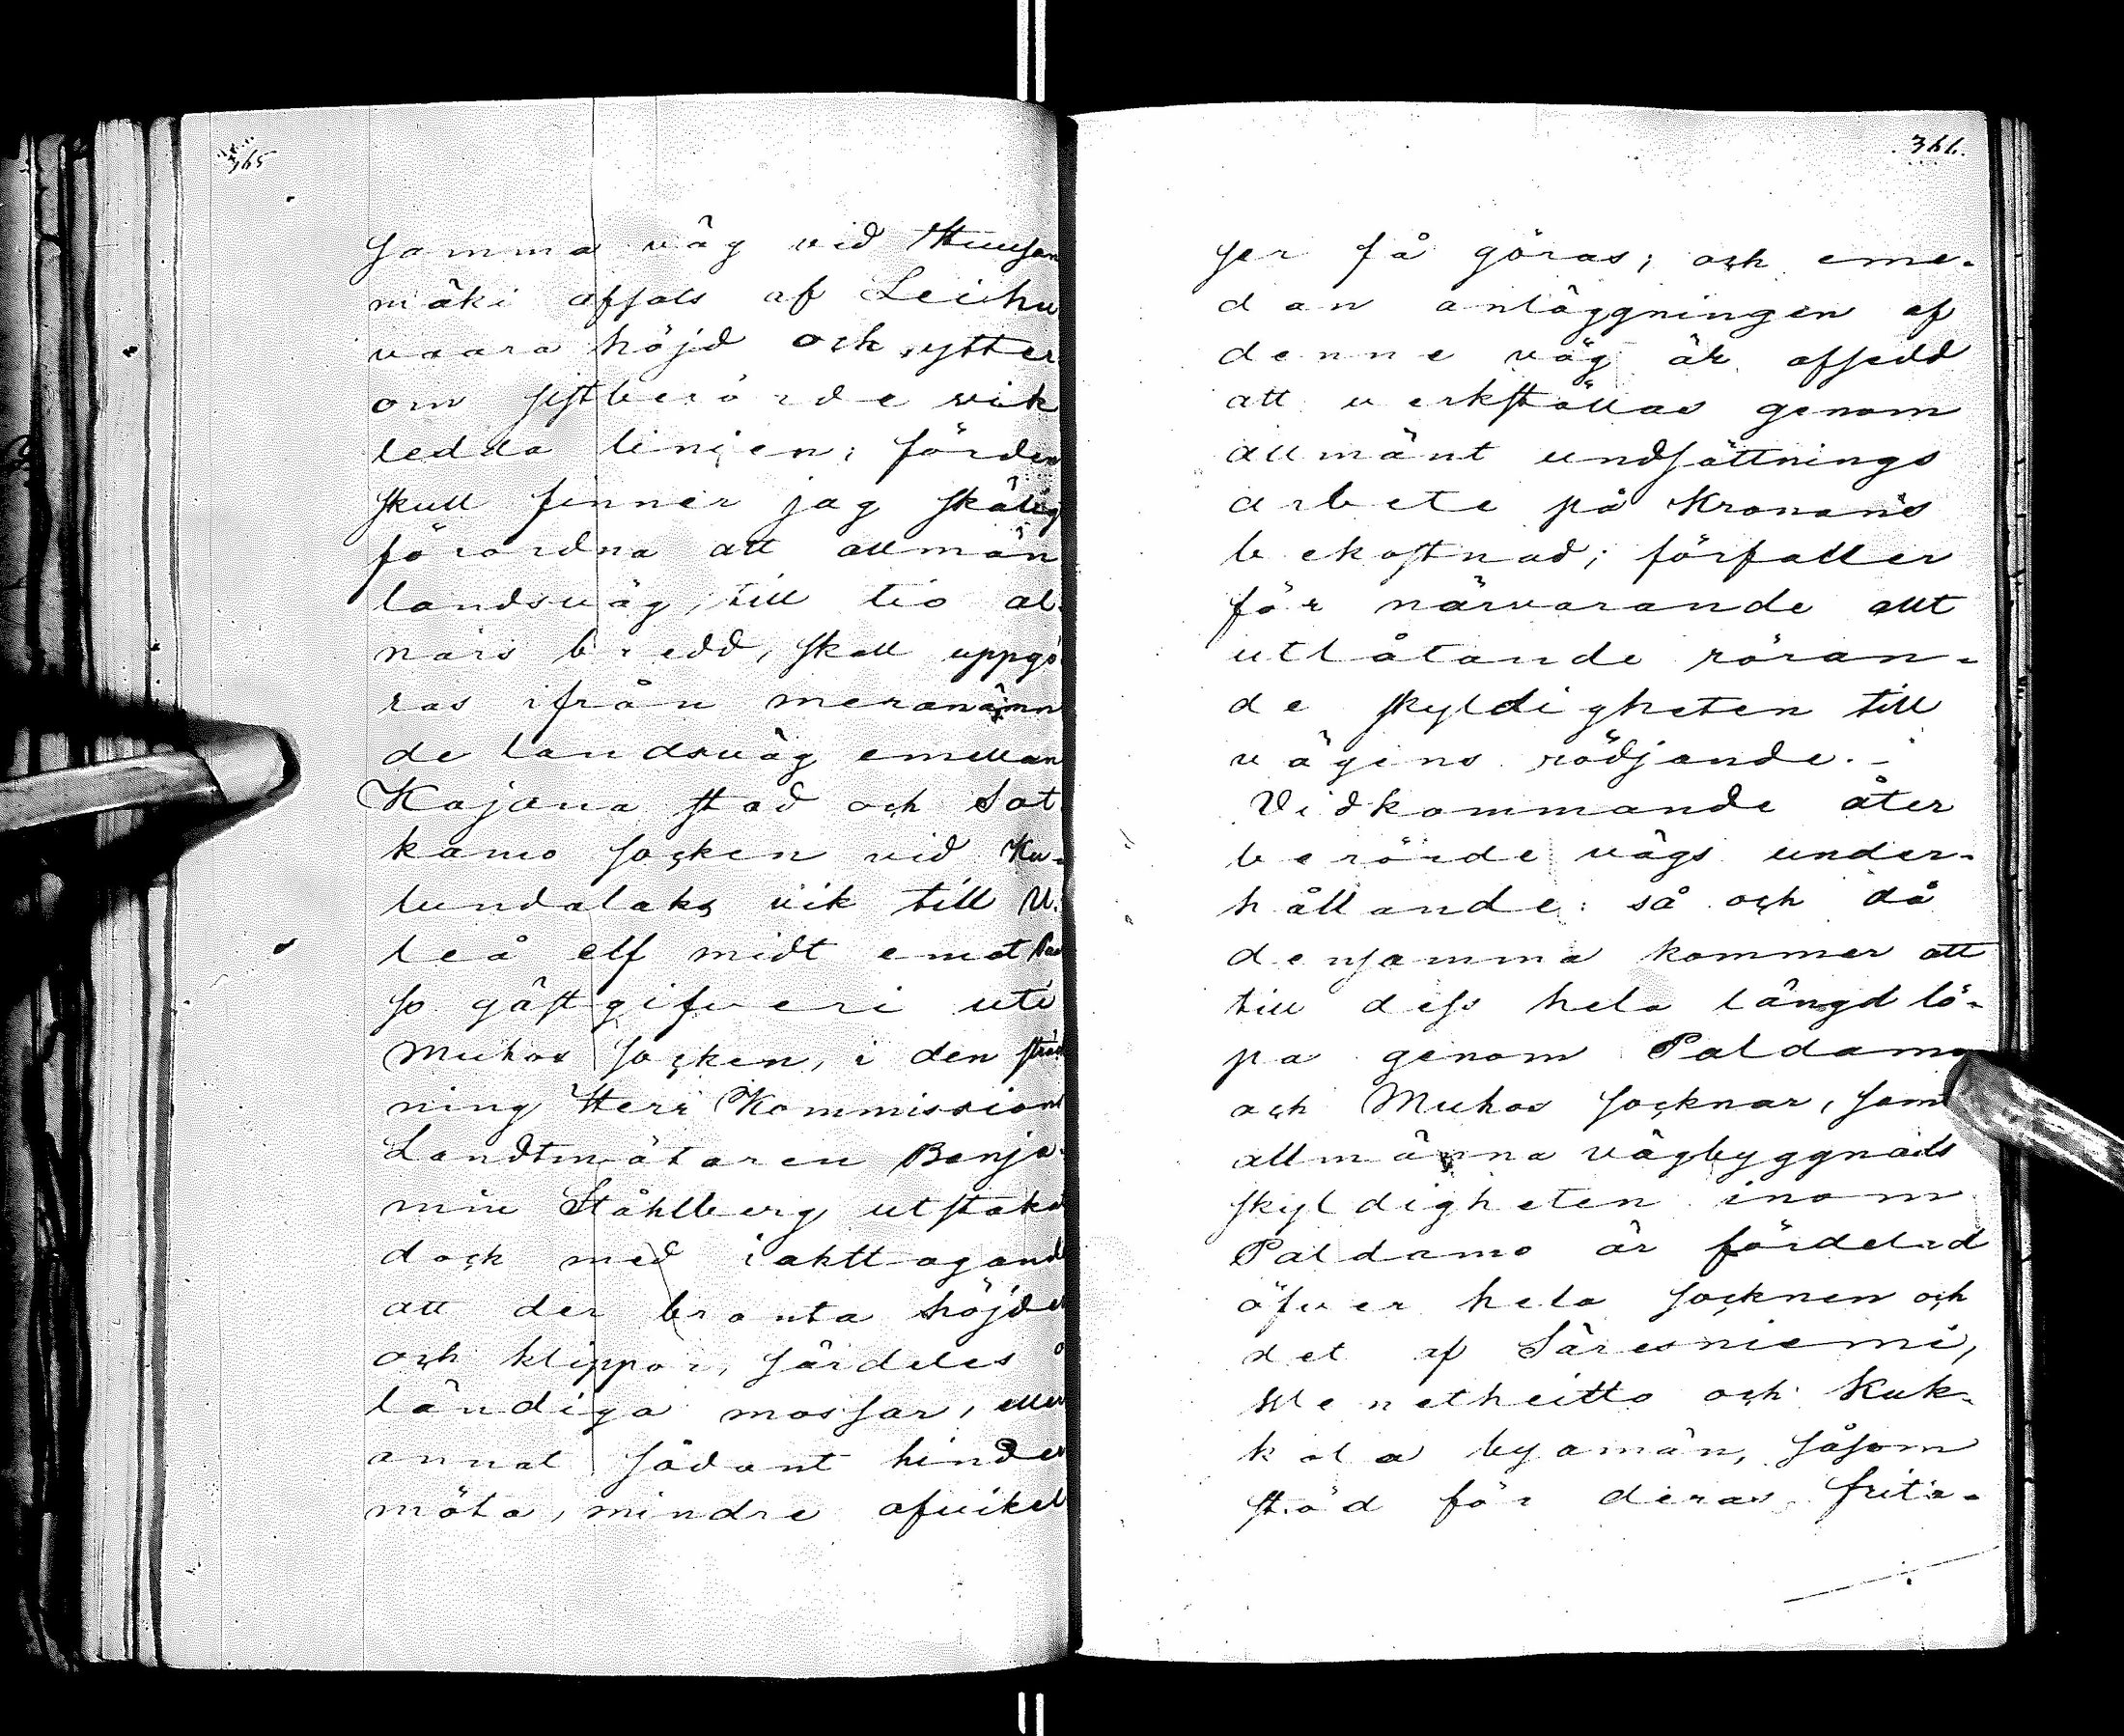 365
samma väg vid Huusan
mäki afsats af Leihu
vaara höjd och ytter
om sistberörde vik
ledda linien; förden
skull finner jag skälig
förordna att allmän
landsväg, till tio al-
nars bredd, skall uppgö
ras ifrån meranämn
de landsväg emellan
Kajana stad och Sot
kamo socken vid Ku-
lundalaks vik till U-
leå elf midt emot
so gästgifveri uti
Muhos socken, i den sträck
ning Herr Kommissions
Landtmätaren Benja-
min Ståhlberg utstakat
dock med iakttagande
att der branta höjder
och klippor, särdeles o
ländiga mossar, eller
annat sådant hinder
möta, mindre afvikel
366.
ser få göras; och eme-
dan anläggningen af
denne väg är afsedd
att verkställas genom
allmänt undsättnings
arbete på Kronans
bekostnad; förfaller
för närvarande allt
utlåtande röran-
de skyldigheten till
vägens rödjande.-
Vidkommande åter
berörde vägs under-
hållande: så och då
densamma kommer att
till dess hela längd lö-
pa genom Paldamo
och Muhos socknar, samt
allmänna vägbyggnads
skyldigheten inom
Paldamo är fördelad
öfver hela socknen och
det af Säresniemi,
Wenetheitto och Kuk-
kola byamän, såsom
stöd för deras frita-